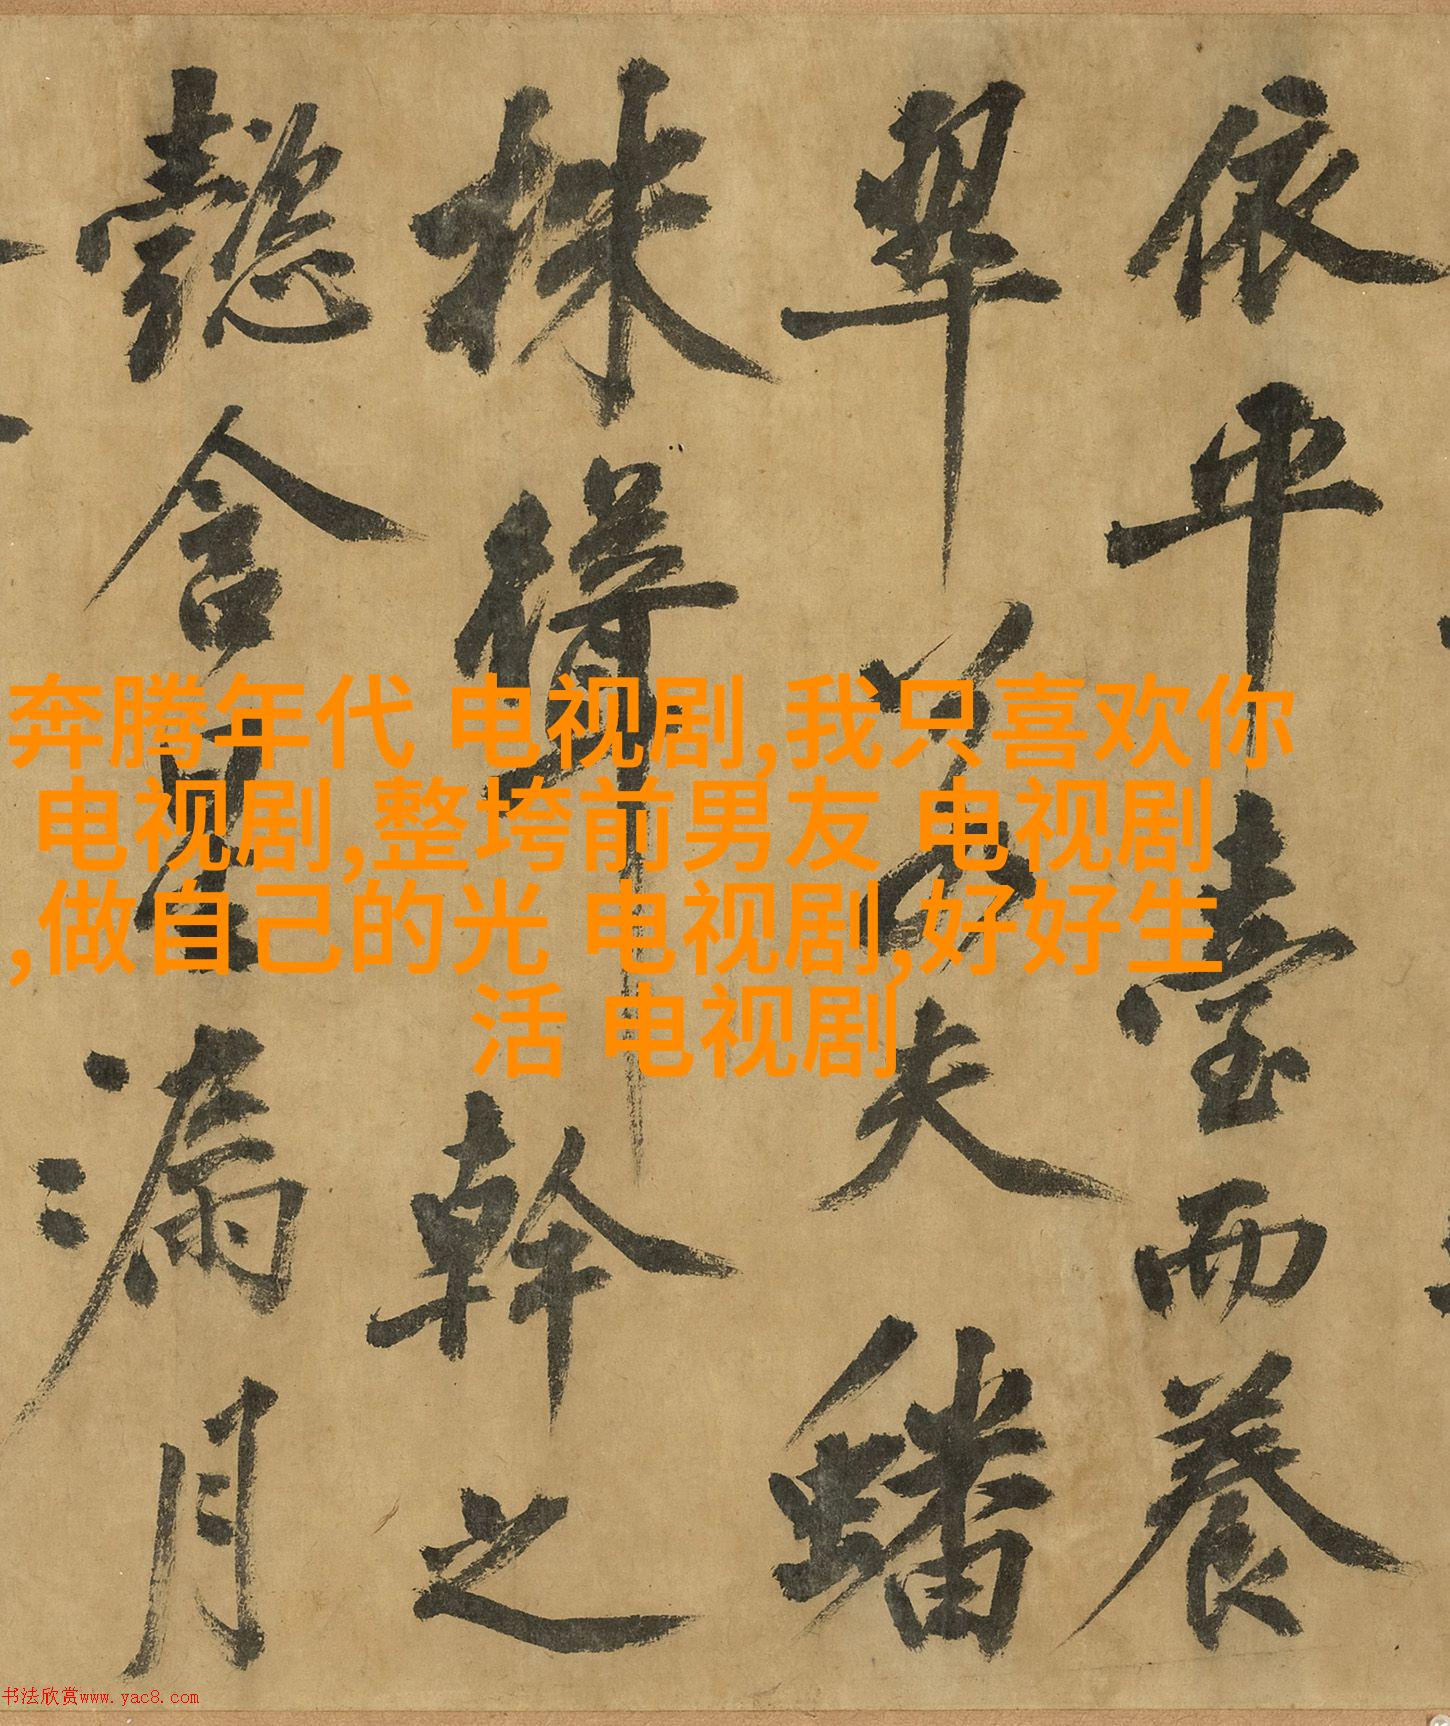 依平臺而養
翠若夫蟠
株聳幹之
懿含星漏月
奔腾年代 电视剧,我只喜欢你
电视剧,整垮前男友 电视剧
,做自己的光 电视剧,好好生
活 电视剧
书法欣赏www.yac8.com